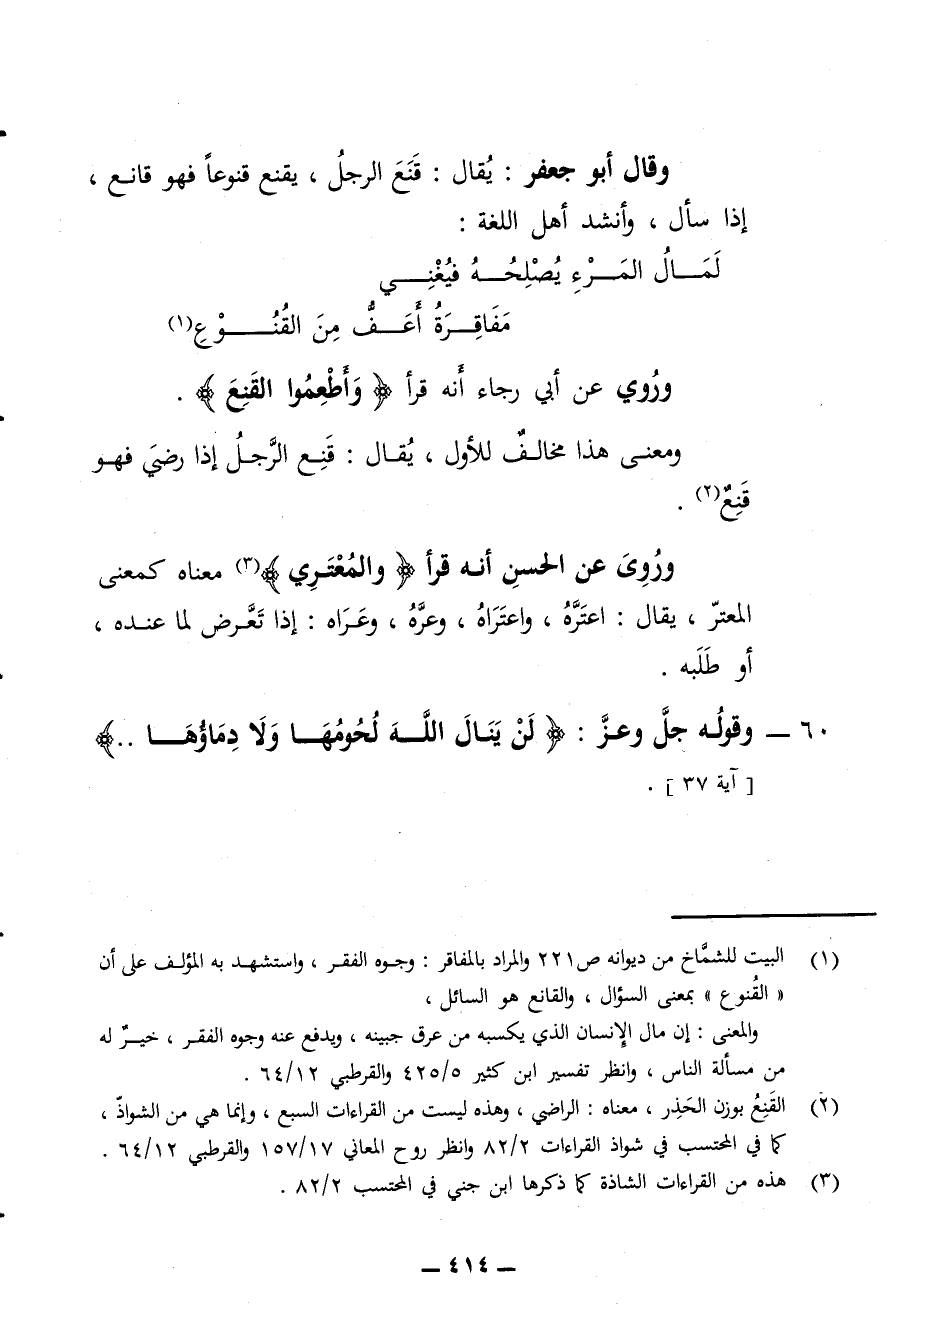 وقال أبو جعفر : يُقال : قَنَعَ الرجلُ ، يقنع قنوعاً فهو قانع ،
إذا سأل ، وأنشد أهل اللغة :
لَمَالُ المَرْءِ يُصْلِحُهُ فَيُغْنِي
مَفَاقِرَهُ أَعَفُّ مِنَ القُنُوْعِ(١)
ورُوي عن أبي رجاء أنه قرأ ﴿ وَأَطْعِمُوا القَنِعَ ﴾ .
ومعنى هذا مخالفٌ للأول ، يُقال : قَنِع الرَّجلُ إذا رضيَ فهو
قَنِعٌ(٢) .
ورُوِىَ عن الحسنِ أنه قرأ ﴿ والمُعْتَرِي ﴾(٣) معناه كمعنى
المعترّ ، يقال : اعتَرَّهُ ، واعتَرَاهُ ، وعرَّهُ ، وعَرَاه : إذا تَعَّرض لما عنده ،
أو طَلَبه .
٦٠ ــ وقولُه جلَّ وعزَّ : ﴿ لَنْ يَنَالَ اللَّهَ لُحُومُهَا وَلَا دِمَاؤُهَا ..﴾
[ آية ٣٧ ] .
(١) البيت للشمَّاخ من ديوانه ص٢٢١ والمراد بالمفاقر : وجوه الفقر ، واستشهد به المؤلف على أن
« القُنوع » بمعنى السؤال ، والقانع هو السائل ،
والمعنى : إن مال الإنسان الذي يكسبه من عرق جبينه ، ويدفع عنه وجوه الفقر ، خيرٌ له
من مسألة الناس ، وانظر تفسير ابن كثير ٤٢٥/٥ والقرطبي ٦٤/١٢ .
(٢) القَنِعُ بوزن الحَذِر ، معناه : الراضي ، وهذه ليست من القراءات السبع ، وإنما هي من الشواذّ ،
كما في المحتسب في شواذ القراءات ٨٢/٢ وانظر روح المعاني ١٥٧/١٧ والقرطبي ٦٤/١٢ .
(٣) هذه من القراءات الشاذة كما ذكرها ابن جني في المحتسب ٨٢/٢ .
ــ ٤١٤ ــ